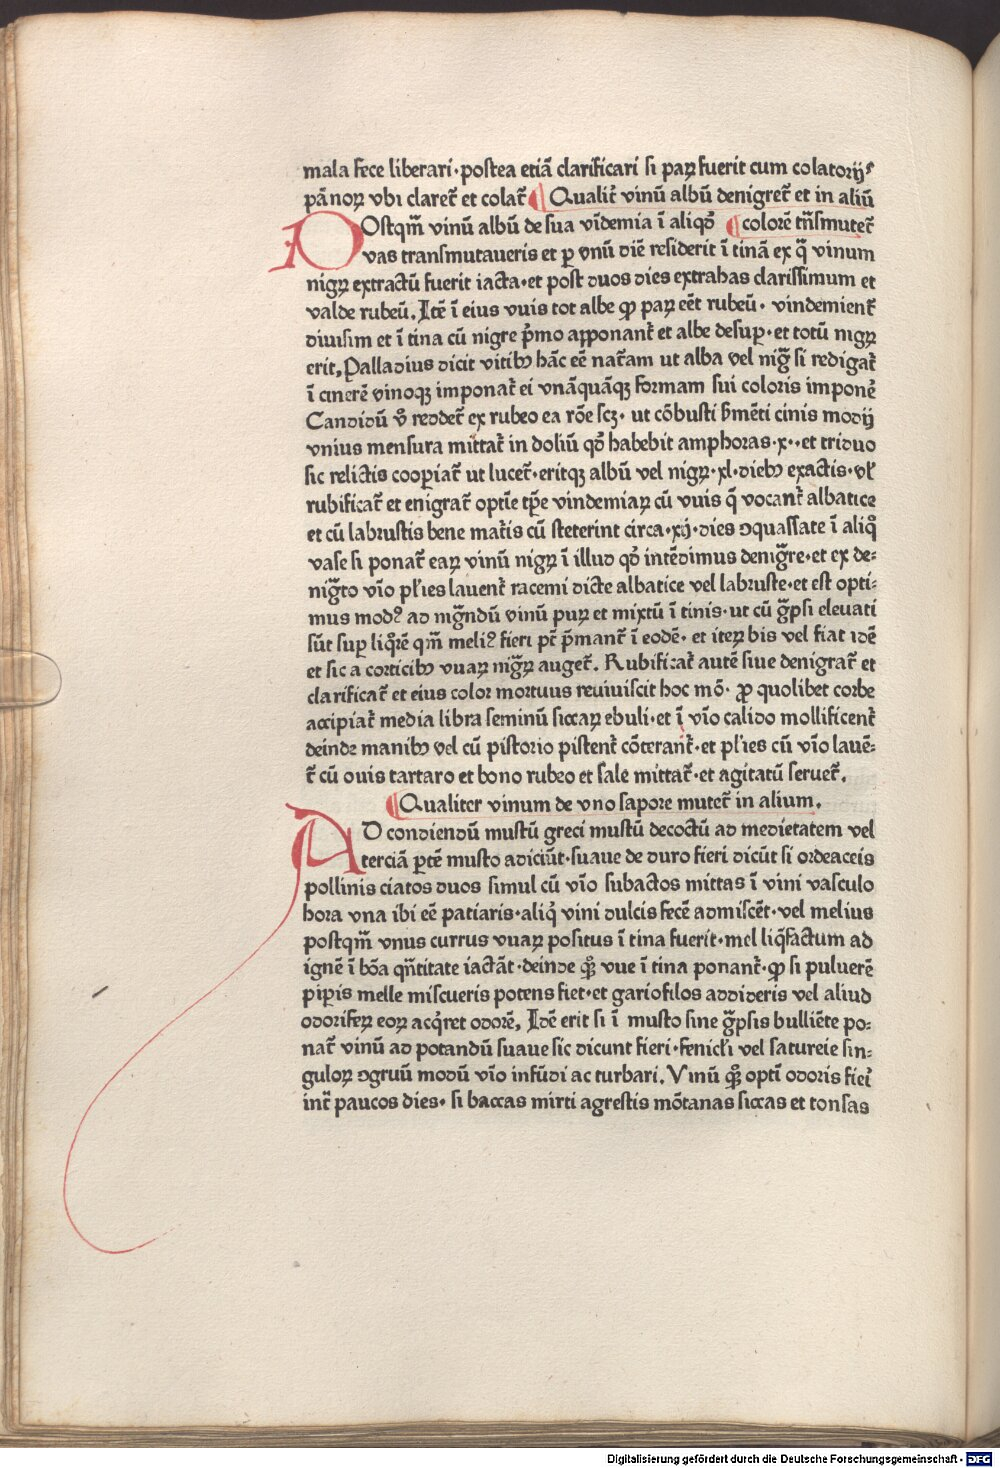 mala fece liberari· postea etiā clarificari si paꝝ fuerit cum colatorijs
pānoꝝ vbi claret̄ et colat̄ ¶ Qualit̄ vinū albū denigret̄ et in aliū
POstqm̄ vinū albū de sua vīdemia ī aliqđ ¶ colorē tn̄smutet̄
vas transmutaueris et ꝑ vnū diē residerit ī tinā ex q̄ vinum
nigꝝ extractū fuerit iacta· et post duos dies extrahas clarissimum et
valde rubeū. Itē ī eius vuis tot albe ꝙ paꝝ eēt rubeū· vindemient̄
diuisim et ī tina cū nigre p̄mo apponant̄ et albe desuꝑ· et totū nigꝝ
erit. Palladius dicit vitibꝫ hāc eē nat̄am ut alba vel nigͣ si redigat̄
ī cinerē vinoqꝫ imponat̄ ei vnāquāqꝫ formam sui coloris imponē
Candidū v̄o reddet̄ ex rubeo ea rōe scꝫ· ut cōbusti s̄mēti cinis modij
vnius mensura mittat̄ in doliū qđ habebit amphoras·x··et triduo
sic relictis cooꝑiat̄ ut lucet̄· eritqꝫ albū vel nigꝝ·xl·diebꝫ exactis·vl̄
rubificat̄ et enigrat̄ optīe tꝑe vindemiaꝝ cū vuis q̄ vocant̄ albatice
et cū labrustis bene mat̄is cū steterint circa·xij·dies ꝯquassate ī aliqͦ
vase si ponat̄ eaꝝ vinū nigꝝ ī illud qđ intēdimus denigͣre· et ex de⸗
nigͣto vīo pl̄ies lauent̄ racemi dicte albatice vel labruste· et est opti⸗
mus modꝰ ad nigͣndū vinū puꝝ et mixtū ī tinis· ut cū gͣpsi eleuati
sūt suꝑ liq̄rē qm̄ meliꝰ fieri pt̄ p̄mant̄ ī eodē· et iteꝝ bis vel fiat idē
et sic a corticibꝫ vuaꝝ nigͣꝝ auget̄. Rubificat̄ autē siue denigrat̄ et
clarificat̄ et eius color mortuus reuiuiscit hoc mō· ꝓ quolibet corbe
accipiat̄ media libra seminū siccaꝝ ebuli· et ī vīo calido mollificent̄
deinde manibꝫ vel cū pistorio pistent̄ cōterant̄· et pl̄ies cū vīo lauē⸗
t̄ cū ouis tartaro et bono rubeo et sale mittat̄· et agitatū seruet̄.
¶ Qualiter vinum de vno sapore mutet̄ in alium.
AD condiendū mustū greci mustū decoctū ad medietatem vel
terciā ꝑtē musto adiciūt· suaue de duro fieri dicūt si ordeaceis
pollinis ciatos duos simul cū vīo subactos mittas ī vini vasculo
hora vna ibi eē patiaris· aliqͥ vini dulcis fecē admiscēt· vel melius
postqm̄ vnus currus vuaꝝ positus ī tina fuerit· mel liq̄factum ad
ignē ī bōa qn̄titate iactāt· deinde qꝫ vue ī tina ponant̄· ꝙ si puluerē
piꝑis melle miscueris potens fiet· et gariofilos addideris vel aliud
odorifeꝝ eoꝝ acq̄ret odorē. Idē erit si ī musto sine gͣpsis bulliēte po⸗
nat̄ vinū ad potandū suaue sic dicunt fieri· fenicl̄i vel satureie sin⸗
guloꝝ ꝯgruū modū vīo infūdi ac turbari. Vinū qꝫ optī odoris fiet̄
int̄ paucos dies· si baccas mirti agrestis mōtanas siccas et tonsas
Digitalisierung gefördert durch die Deutsche Forschungsgemeinschaft - DFG